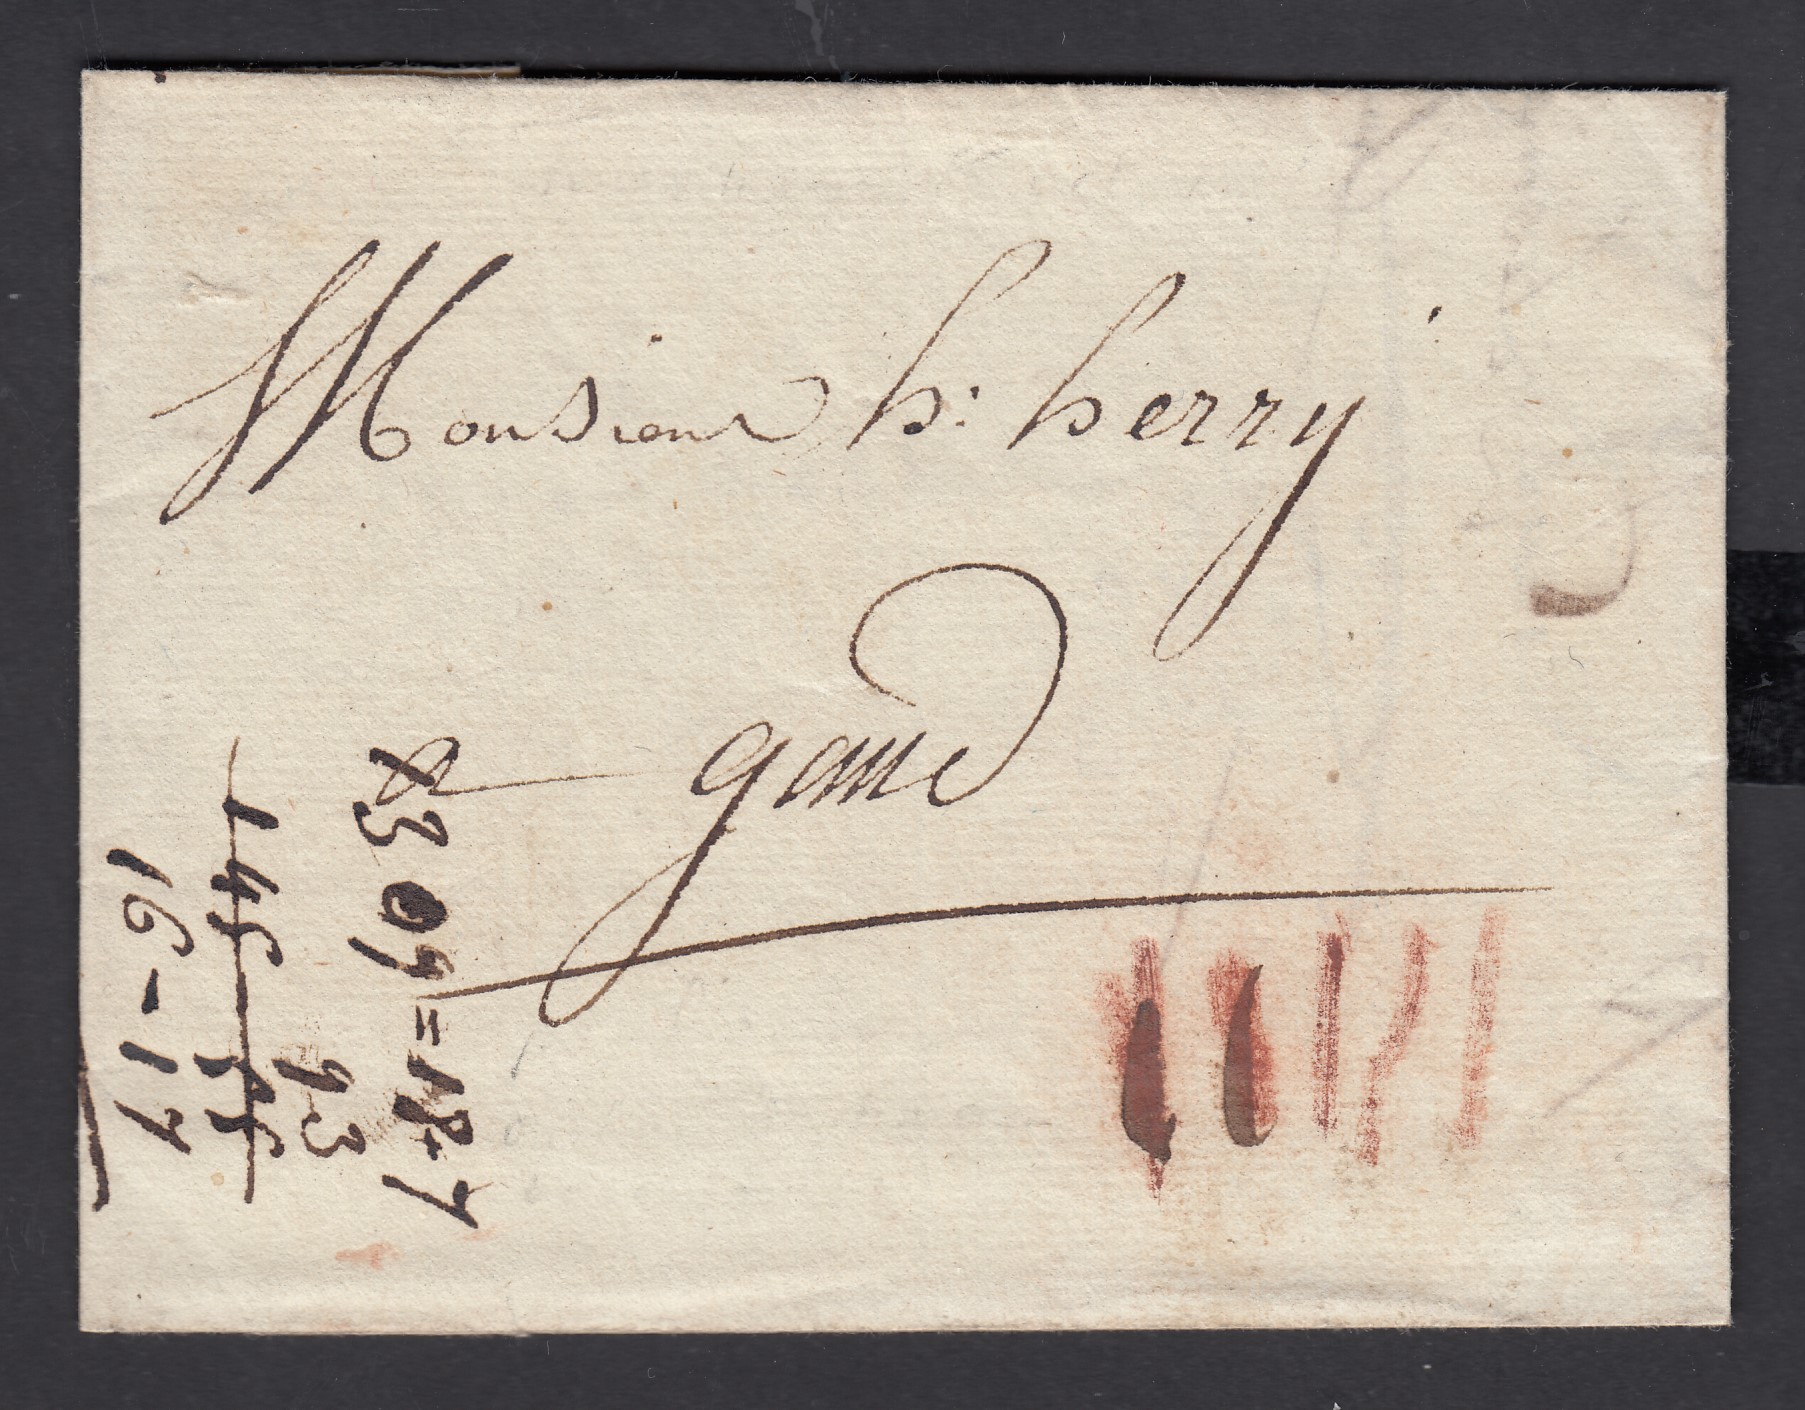 Monsieur h: herry
gand
309=18-7
93
145
16-17